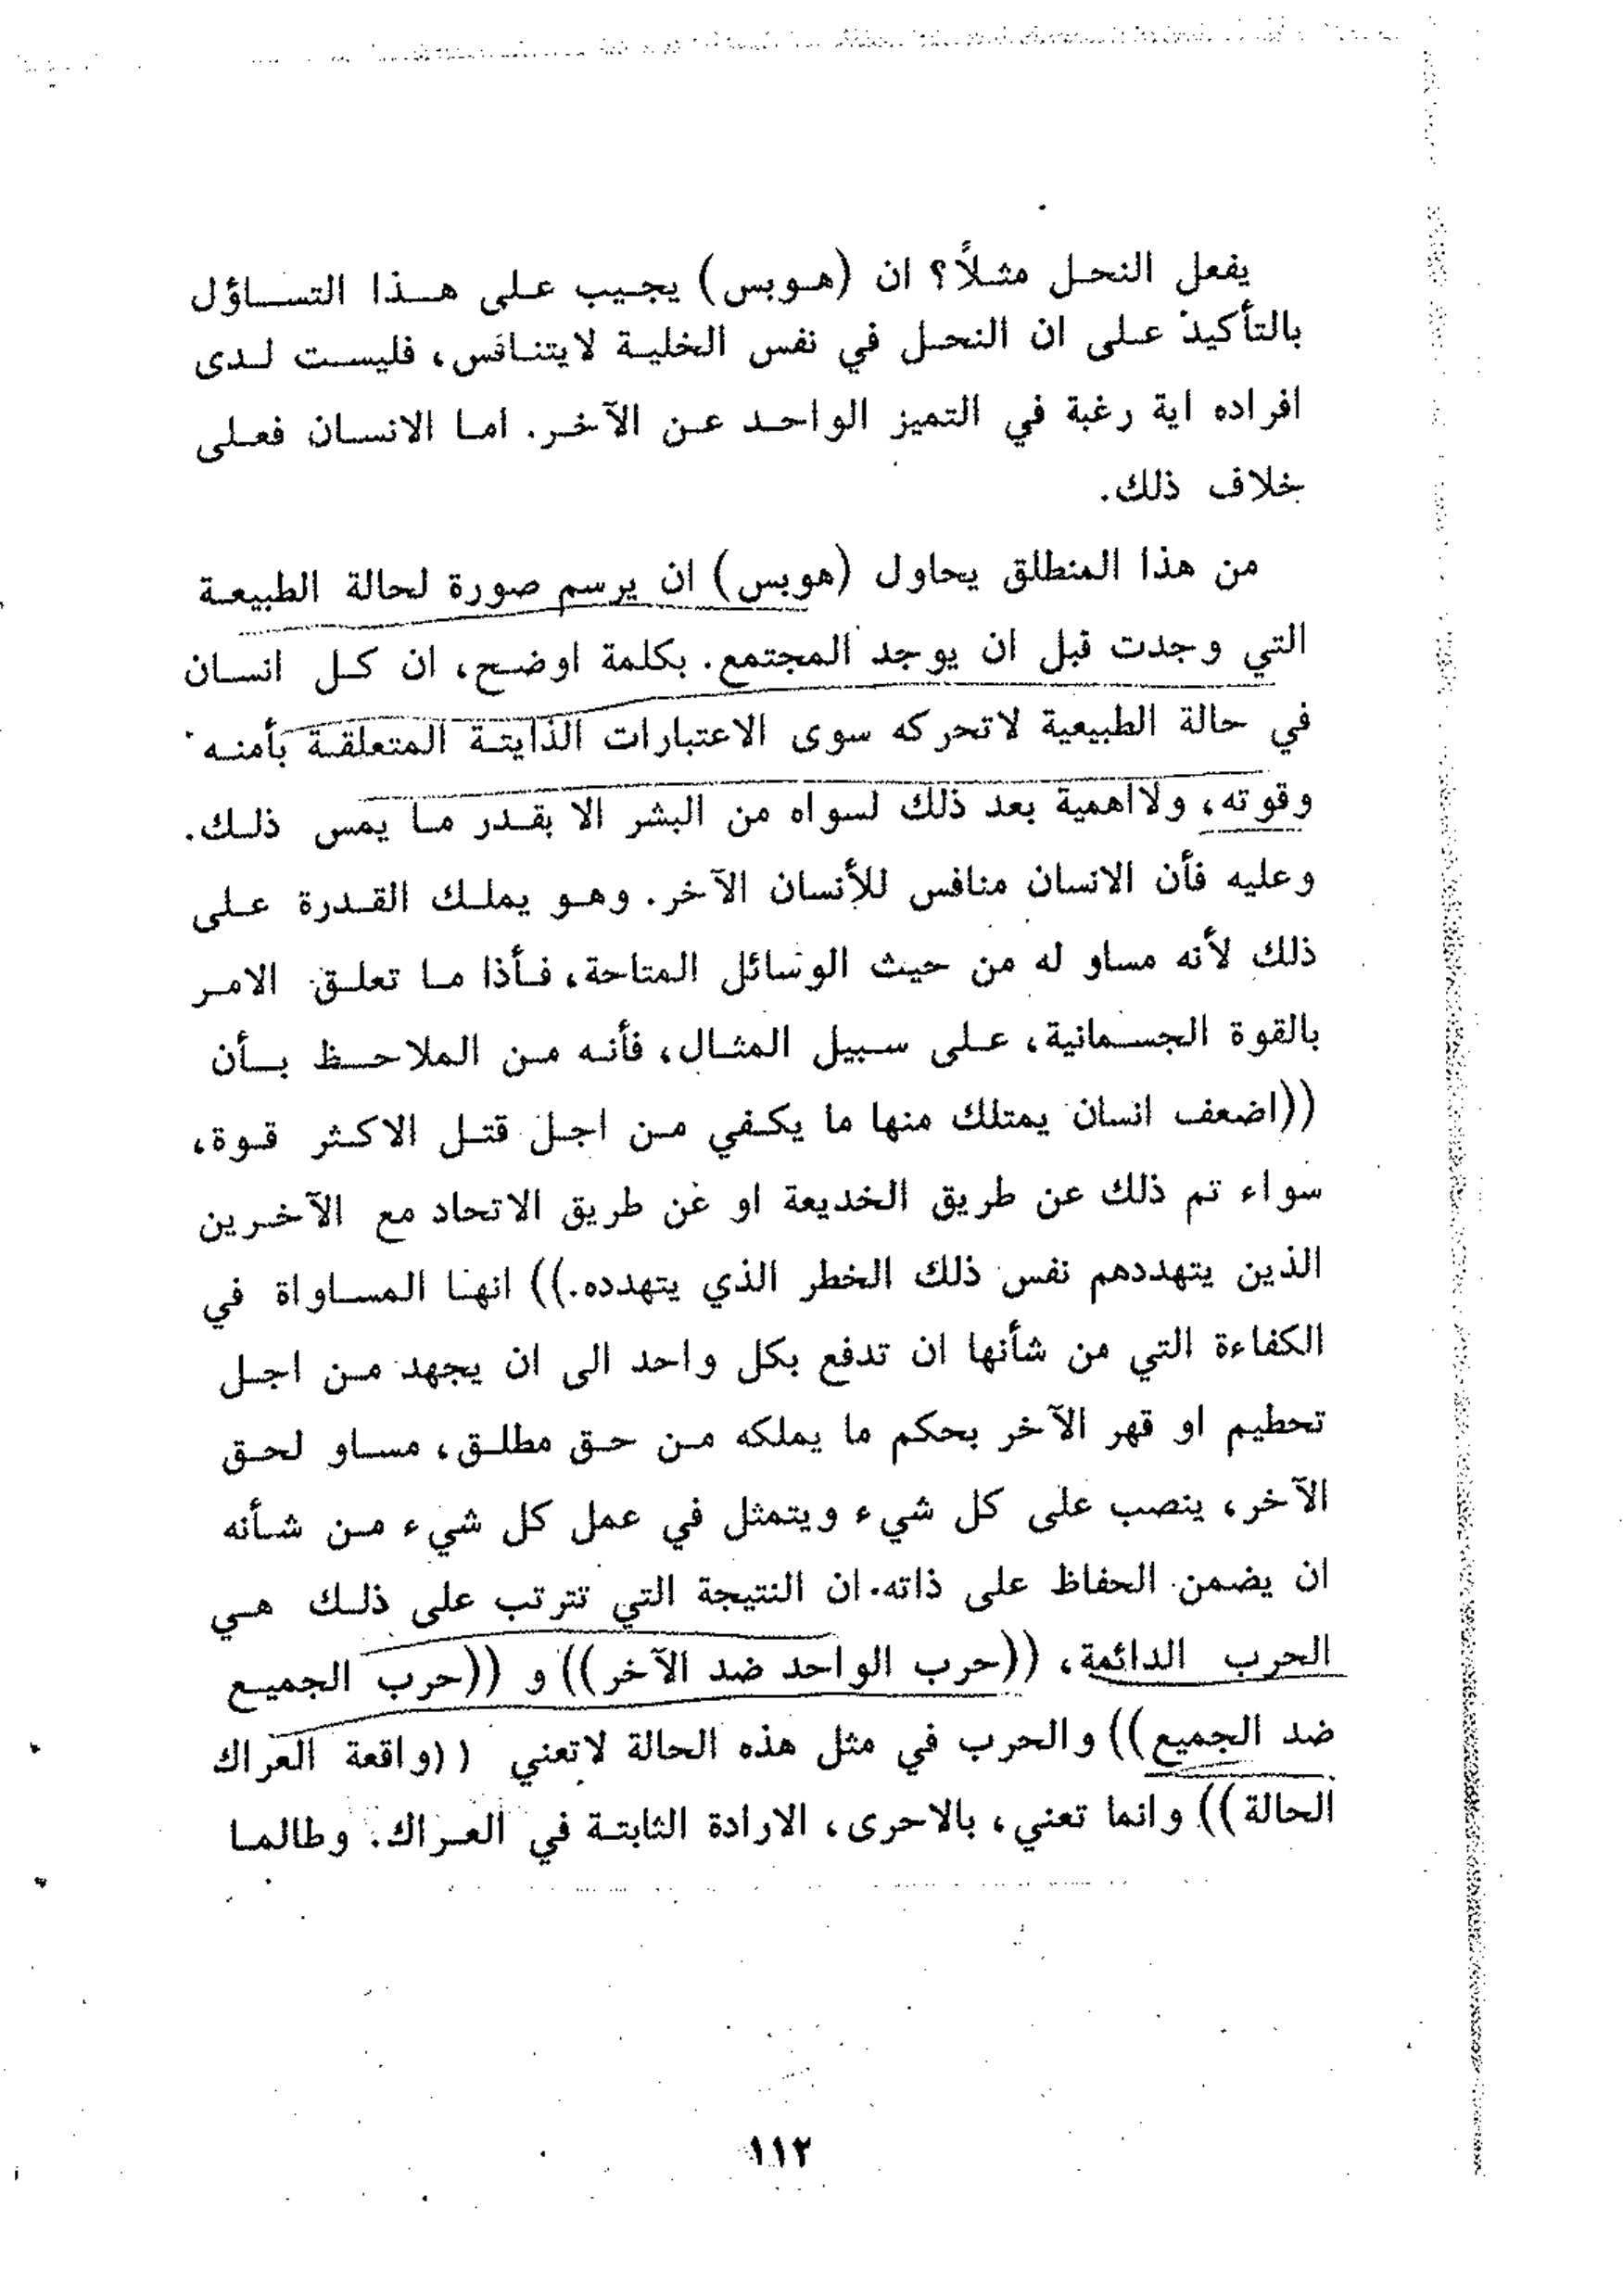 يفعل النحل مثلاً؟ ان (هوبس) يجيب على هذا التساؤل
بالتأكيد على ان النحل في نفس الخلية لايتنافس، فليست لدى
افراده اية رغبة في التميز الواحد عن الآخر. اما الانسان فعلى
خلاف ذلك.
من هذا المنطلق يحاول (هوبس) ان يرسم صورة لحالة الطبيعة
التي وجدت قبل ان يوجد المجتمع. بكلمة اوضح، ان كل انسان
في حالة الطبيعية لاتحركه سوى الاعتبارات الذايتة المتعلقة بأمنه
وقوته، ولااهمية بعد ذلك لسواه من البشر الا بقدر ما يمس ذلك.
وعليه فأن الانسان منافس للأنسان الآخر. وهو يملك القدرة على
ذلك لأنه مساو له من حيث الوسائل المتاحة، فأذا ما تعلق الامر
بالقوة الجسمانية، على سبيل المثال، فأنه من الملاحظ بأن
((اضعف انسان يمتلك منها ما يكفي من اجل قتل الاكثر قوة،
سواء تم ذلك عن طريق الخديعة او عن طريق الاتحاد مع الآخرين
الذين يتهددهم نفس ذلك الخطر الذي يتهدده.)) انها المساواة في
الكفاءة التي من شأنها ان تدفع بكل واحد الى ان يجهد من اجل
تحطيم او قهر الآخر بحكم ما يملكه من حق مطلق، مساو لحق
الآخر، ينصب على كل شيء ويتمثل في عمل كل شيء من شأنه
ان يضمن الحفاظ على ذاته. ان النتيجة التي تترتب على ذلك هي
الحرب الدائمة، ((حرب الواحد ضد الآخر)) و ((حرب الجميع
ضد الجميع)) والحرب في مثل هذه الحالة لاتعني ((واقعة العراك
الحالة)) وانما تعني، بالاحرى، الارادة الثابتة في العراك. وطالما
١١٢